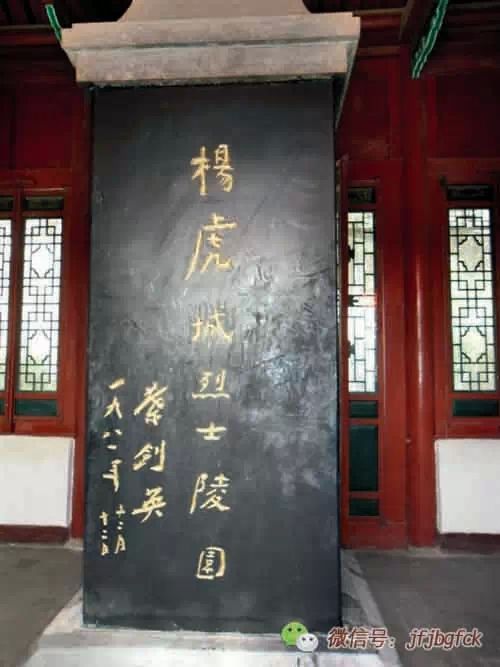 楊虎城烈士陵園
葉剑英
一九八一年
十二月
十二日
微信号：jfjbgfck